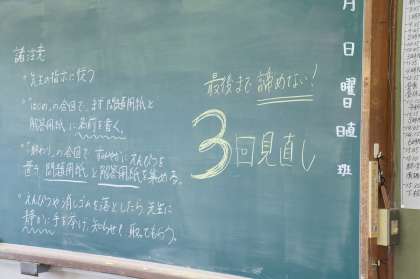 諸注意
・先生の指示に従う
・「はじめ」の合図で、まず問題用紙と
解答用紙に名前を書く。
・「終わり」の合図ですみやかにえんぴつを
置き、問題用紙と解答用紙を集める。
・えんぴつや消しゴムを落としたら、先生に
静かに手を挙げ、知らせて取ってもらう。
最後まで諦めない!
3回見直し
月
日
曜日
日直
班